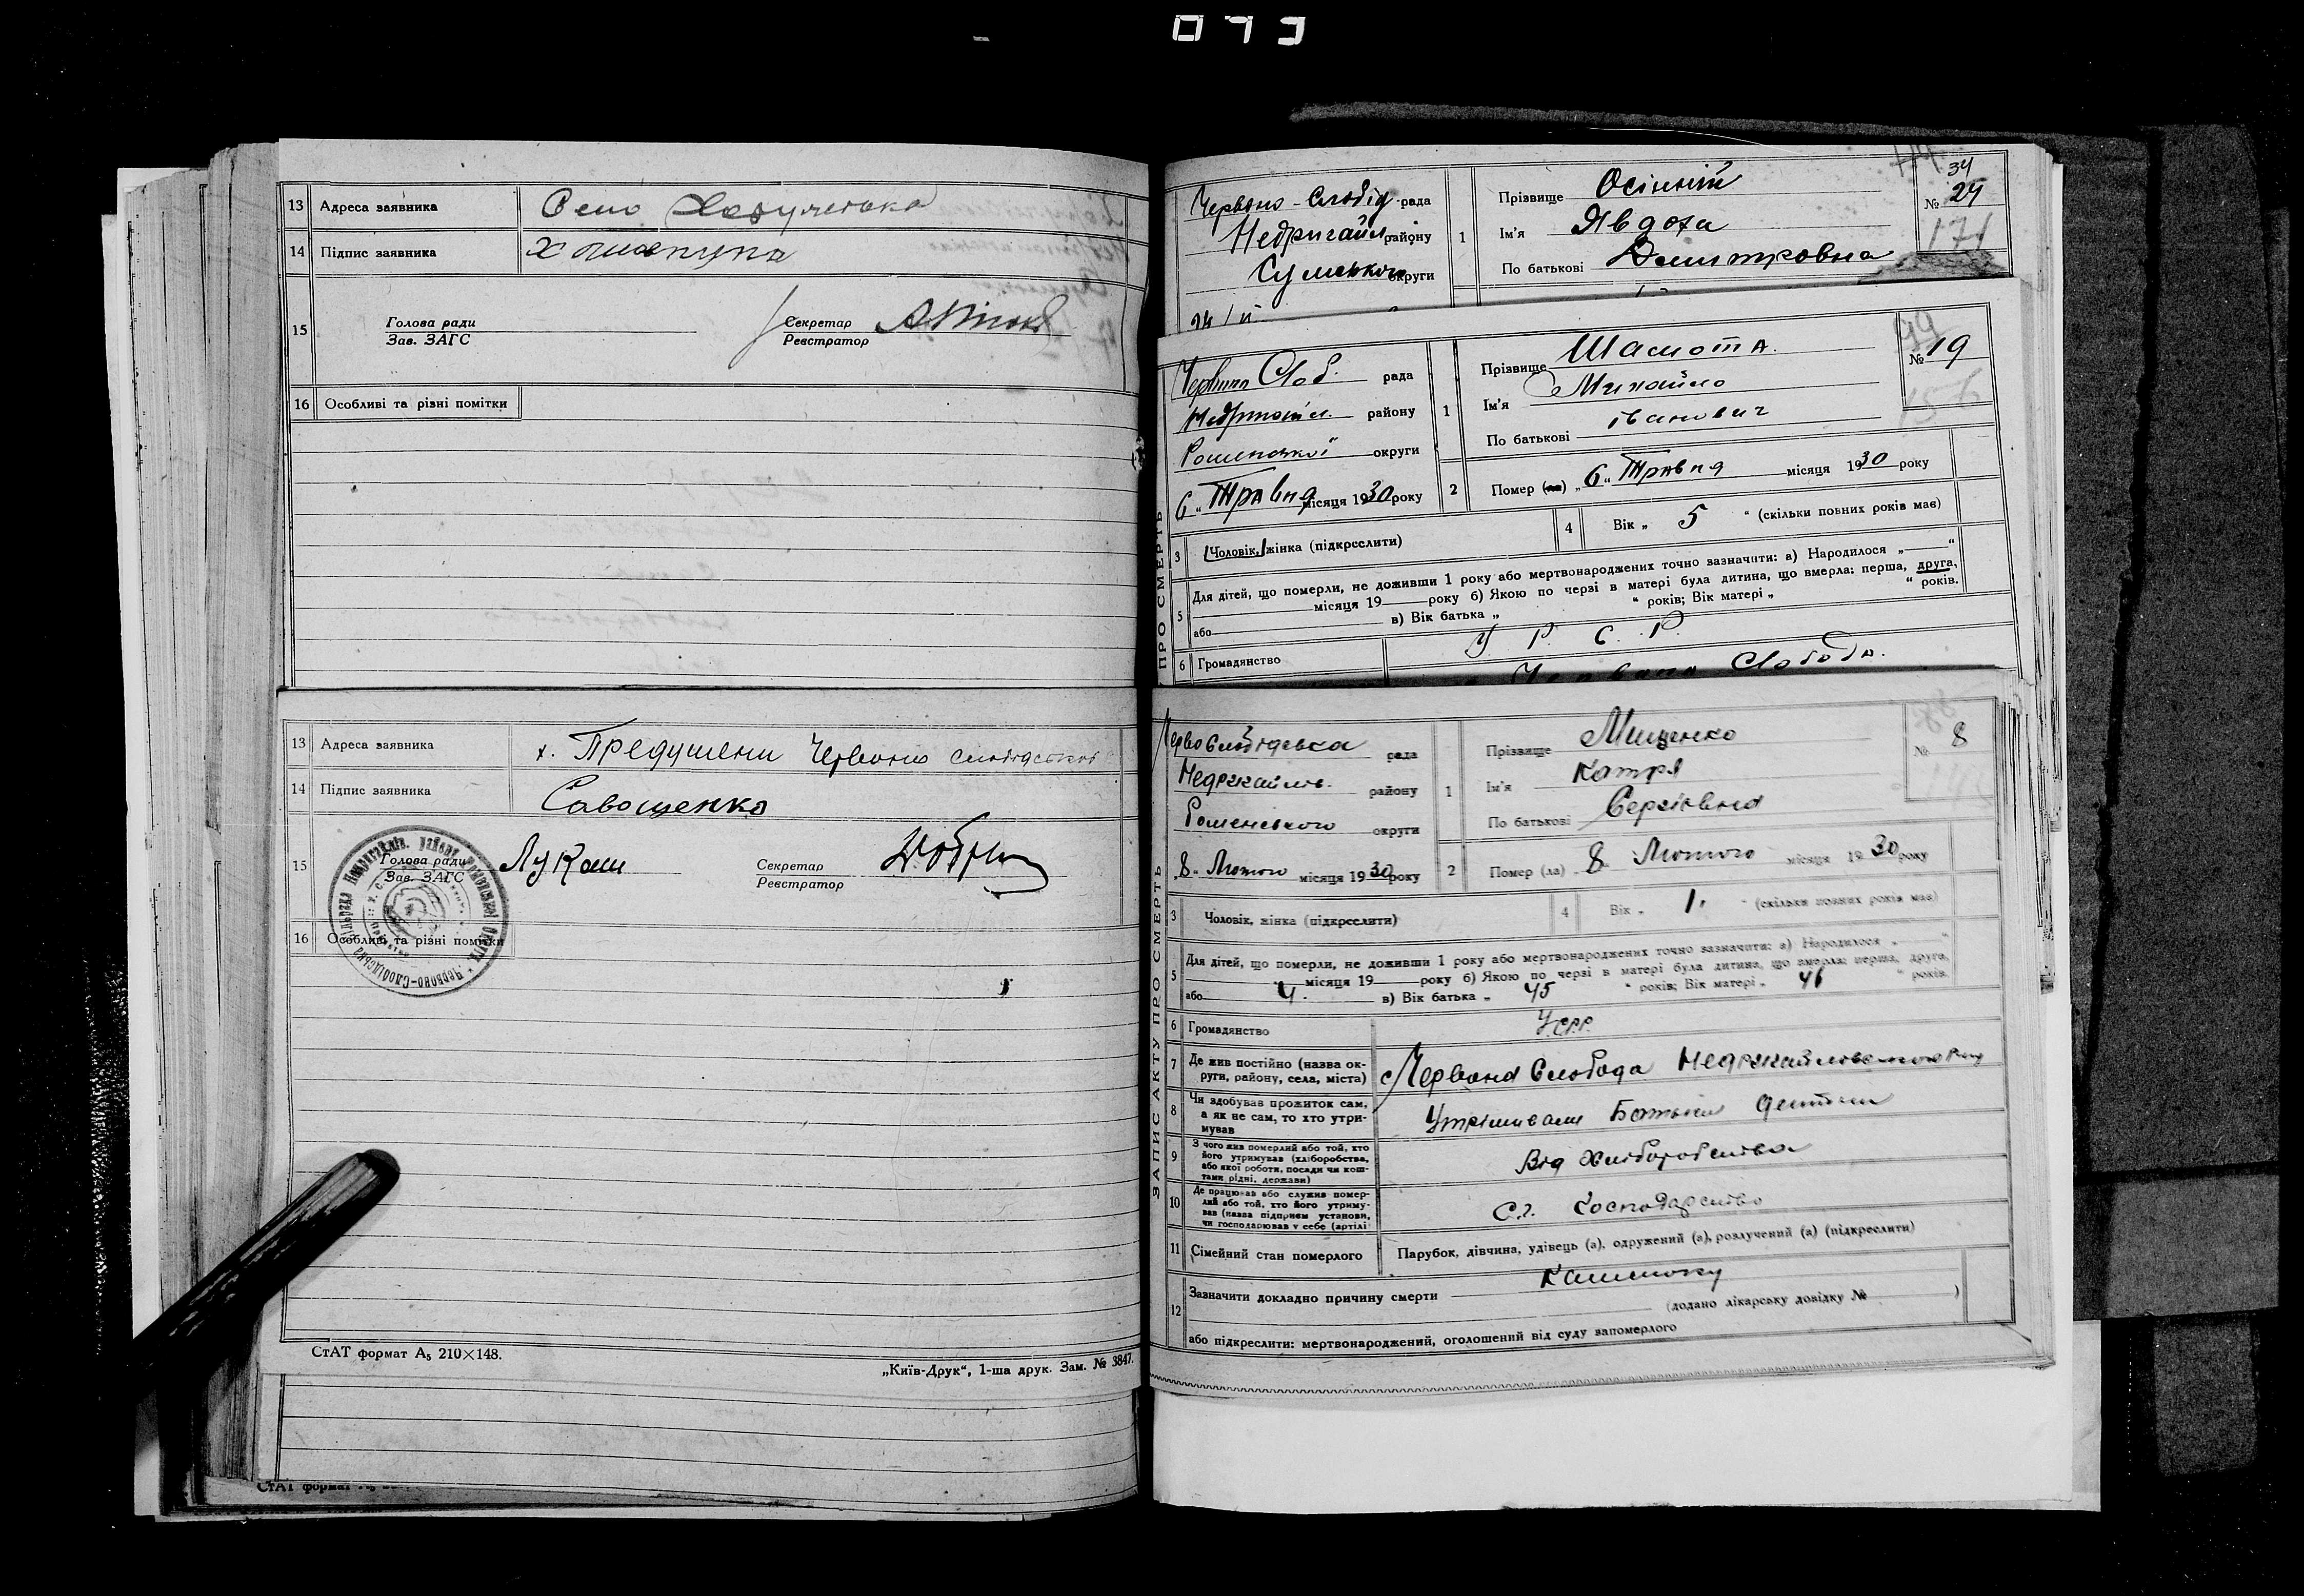 13 Адреса заявника Село
14 Підпис заявника
15 Голова ради Секретар
Зав. ЗАГС Реєстратор
16 Особливі та різні помітки
13 Адреса заявника х. Предушени Червоно слобідської
14 Підпис заявника Савощенко
15 Голова ради Лукаш Секретар
Зав. ЗАГС Реєстратор
16 Особливі та різні помітки
СтАТ формат А₅ 210×148.
„Київ-Друк“, 1-ша друк. Зам. № 3847.
СтАТ формат
Червоно-Слобід рада
Недригайл району
Сумського округи
1 Прізвище Осінній
Ім'я Явдоха
По батькові Дмитровна
34
№ 24
171
Червоно Слоб. рада
Недригайл. району
Роменської округи
6 „ Травня місяця 1930 року
1 Прізвище Шамота.
Ім'я Михайло
По батькові іванович
99
№ 19
156
2 Помер (ла) „6“ Травня місяця 1930 року
3 Чоловік, жінка (підкреслити)
4 Вік „ 5 “ (скільки повних років має)
ПРО СМЕРТЬ
5 Для дітей, що померли, не доживши 1 року або мертвонароджених точно зазначити: а) Народилося „ “
місяця 19 року б) Якою по черзі в матері була дитина, що вмерла: перша, друга,
або в) Вік батька „ “ років; Вік матері „ “ років.
6 Громадянство У. Р. С. Р.
Червона Слобода.
ЧервоСлобідська рада
району
Роменського округи
„8“ Лютого місяця 1930 року
1 Прізвище Мищенко
Ім'я Катря
По батькові Сергіївна
№ 8
2 Помер (ла) „8 Лютого місяця 1930 року
3 Чоловік, жінка (підкреслити)
4 Вік „ 1. “ (скільки повних років має)
ЗАПИС АКТУ ПРО СМЕРТЬ
5 Для дітей, що померли, не доживши 1 року або мертвонароджених точно зазначити: а) Народилося „ “
місяця 19 року б) Якою по черзі в матері була дитина, що вмерла: перша, друга,
або 4. в) Вік батька „ 45 “ років; Вік матері „ 46 “ років.
6 Громадянство УСРР.
7 Де жив постійно (назва ок-
руги, району, села, міста) Червона Слобода
8 Чи здобував прожиток сам,
а як не сам, то хто утри-
мував Утримували Батьки дитини
9 З чого жив померлий або той, хто
його утримував (хліборобства,
або якої роботи, посади чи кош-
тами рідні, держави) Від Хліборобства
10 Де працював або служив помер-
лий або той, хто його утриму-
вав (назва підприєм установи,
чи господарював у себе (артілі С.г. Господарство
11 Сімейний стан померлого Парубок, дівчина, удівець (а), одружений (а), розлучений (а) (підкреслити)
12 Зазначити докладно причину смерти Кашлюку
(додано лікарську довідку № )
або підкреслити: мертвонароджений, оголошений від суду запомерлого